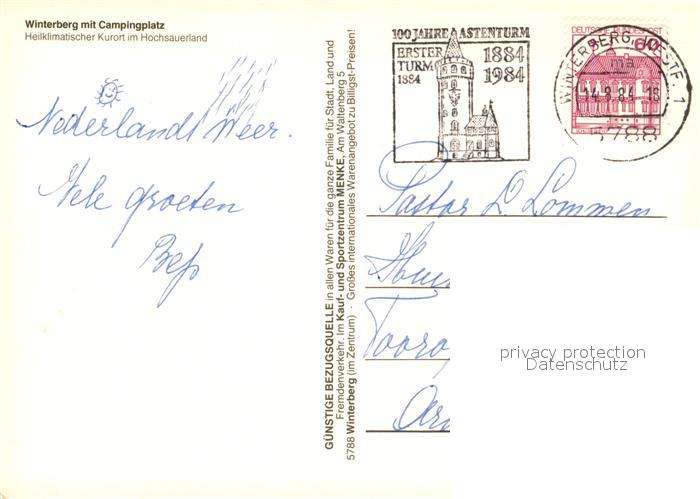 Winterberg mit Campingplatz
Heilklimatischer Kurort im Hochsauerland
Nederlands Weer.
Vele groeten
Bep
GÜNSTIGE BEZUGSQUELLE in allen Waren für die ganze Familie für Stadt, Land und
Fremdenverkehr. Im Kauf- und Sportzentrum MENKE, Am Waltenberg 5
5788 Winterberg (im Zentrum) · Großes internationales Warenangebot zu Billigst-Preisen!
100 JAHRE ASTENTURM
ERSTER
TURM
1884
1884
1984
DEUTSCHE BUNDESPOST
60
WINTERBERG, 1
5788
Pastor L Lommen
privacy protection
Datenschutz